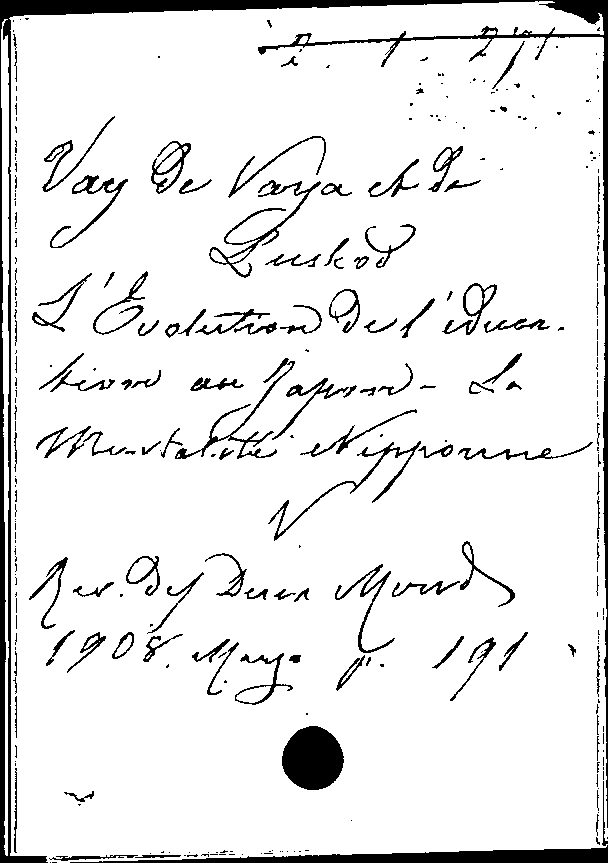 2. 1. 271.
Vay De Vaya et de
Luskod
L'Évolution De l'éduca-
tion au Japon - La
Mentalité Nipponne
V
Rev. Des Deux Mond
1908. Mayo p. 191